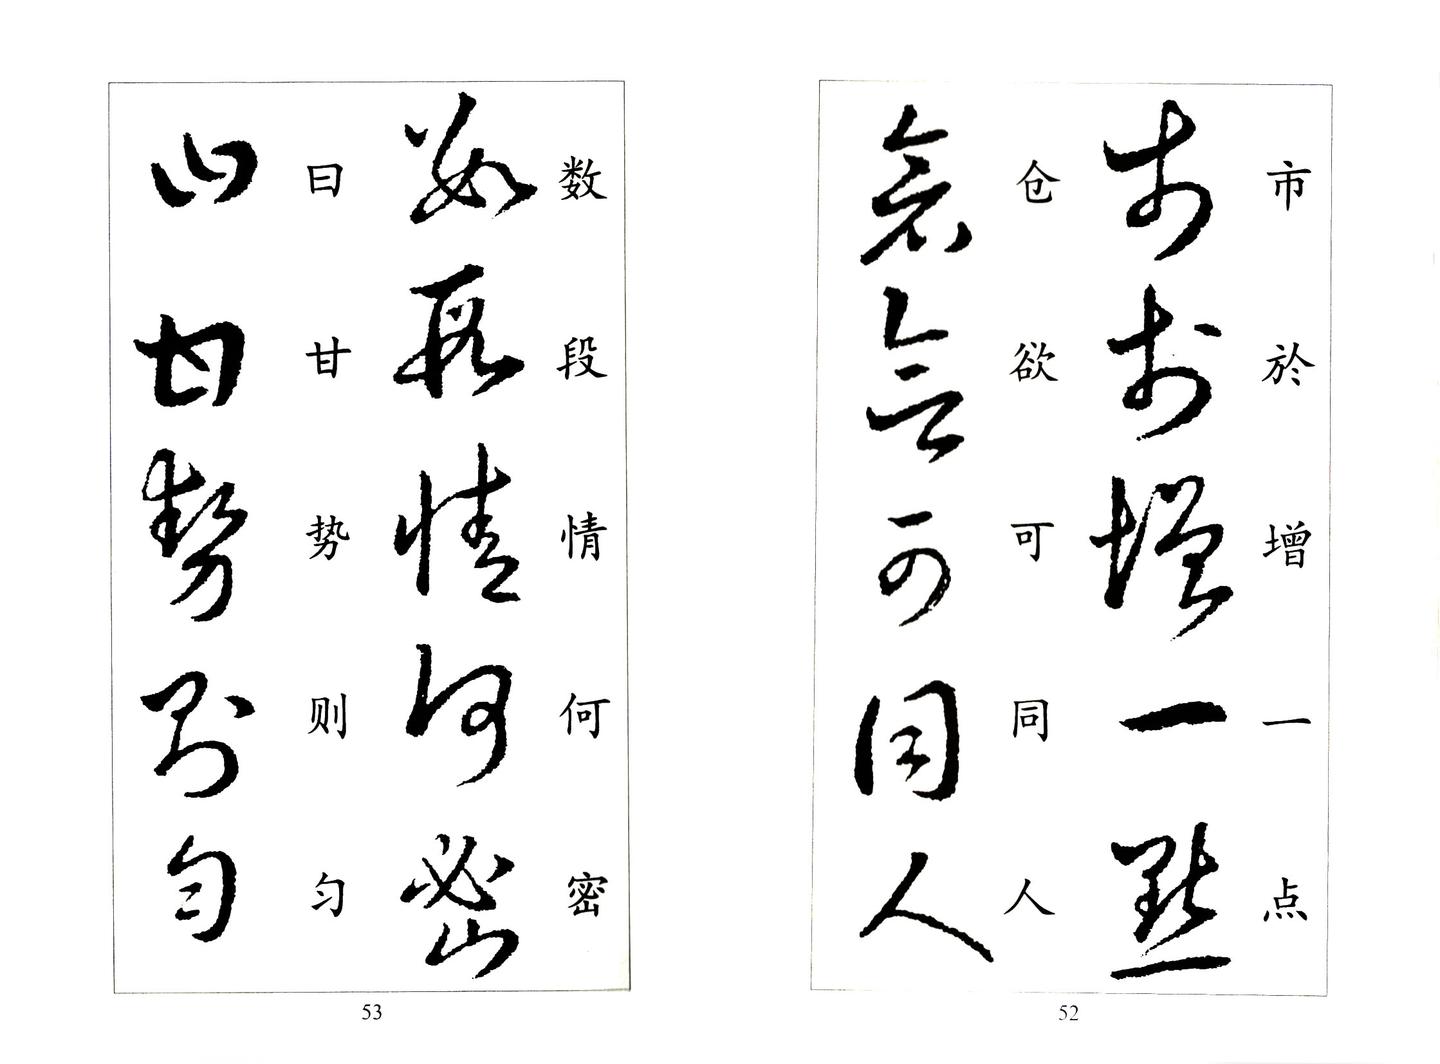 市於增一点
仓欲可同人
52
数段情何密
曰甘势则匀
53